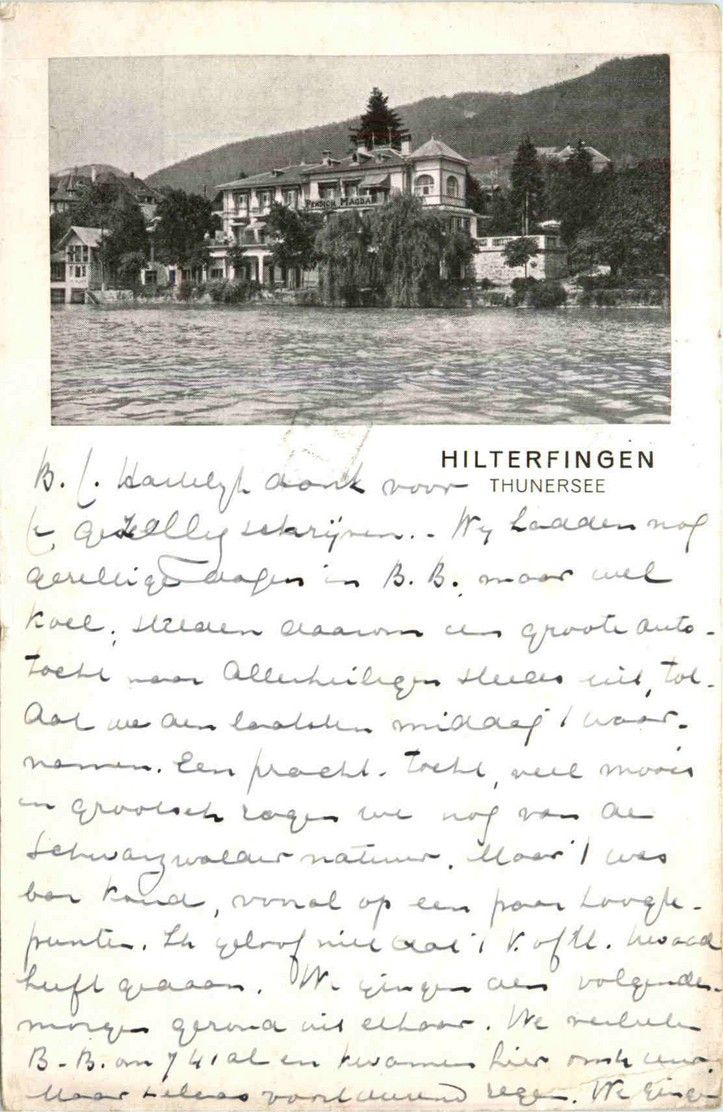 PENSION MAGDA
HILTERFINGEN
THUNERSEE
B. C. Hartelijk dank voor
gezellig schrijven.. Wij hadden nog
gezellige dagen in B. B. maar wel
koel, stelden daarom een groote auto-
tocht naar Allerheiligen steeds uit, tot-
dat we den laatsten middag 't waar-
namen. Een pracht-tocht, veel moois
en grootsch zagen we nog van de
Schwarzwalder natuur. Maar 't was
bar koud, vooral op een paar hoogte-
punten. Ik geloof niet dat 't kwaad
heeft gedaan. We gingen den volgenden
morgen gezond uit elkaar. We verlieten
B-B. om 7 41 al en kwamen hier om uur.
Maar helaas voortdurend regen. We gingen